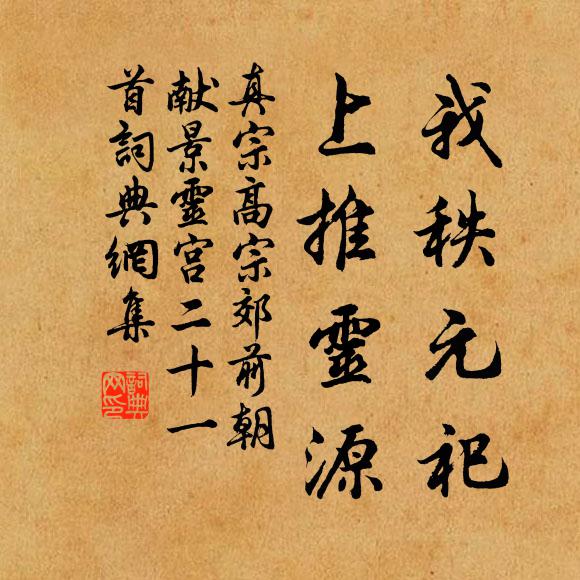 我秩元祀
上推靈源
真宗高宗郊前朝
献景靈宮二十一
首詞典網集
詞典
网印